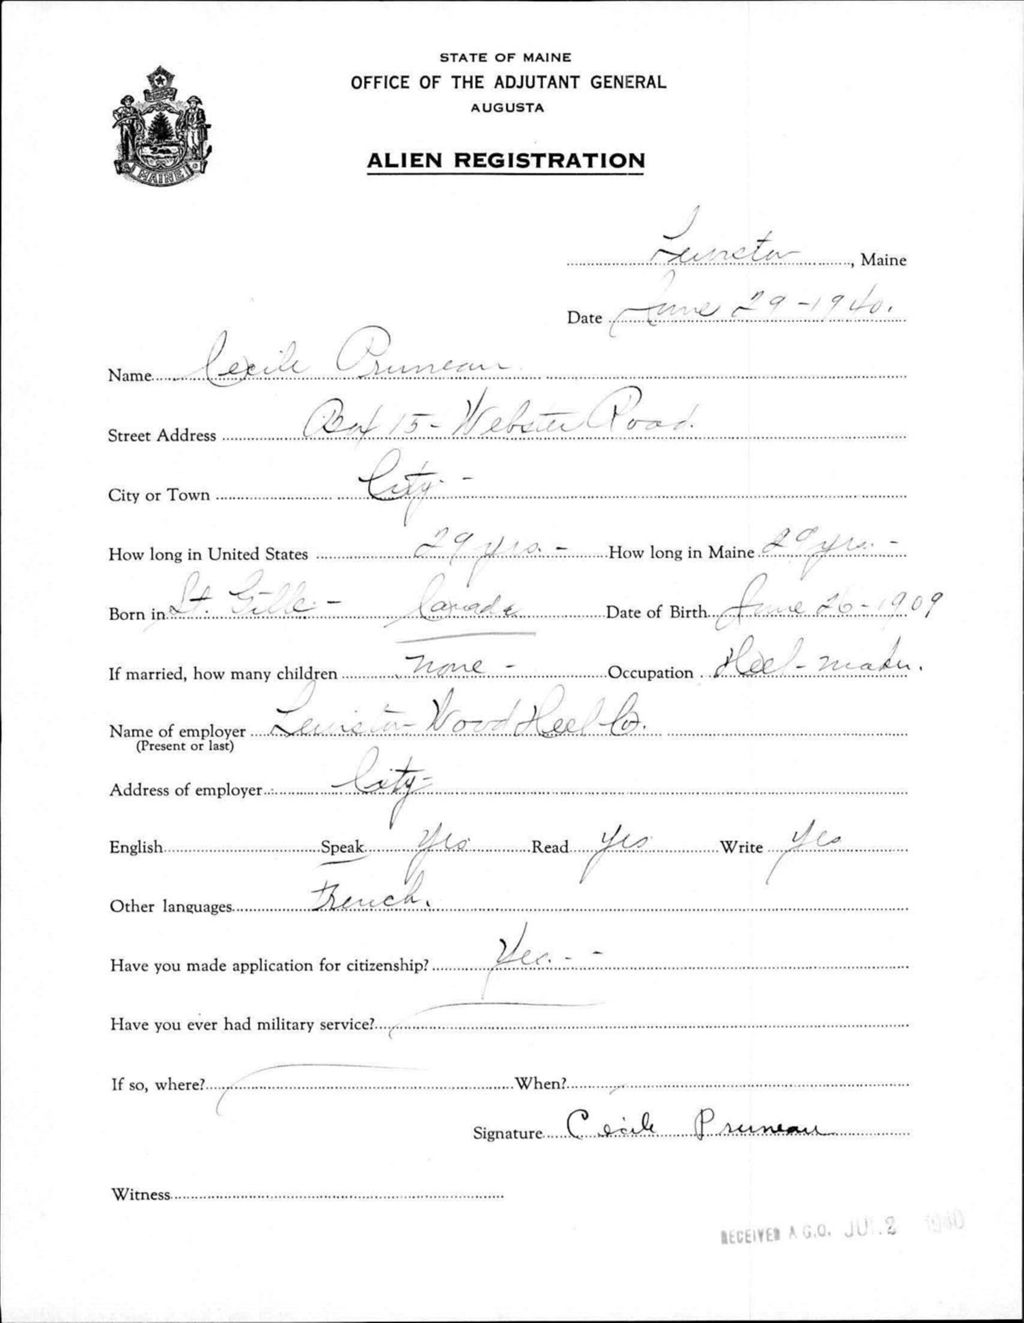 STATE OF MAINE
OFFICE OF THE ADJUTANT GENERAL
AUGUSTA
ALIEN REGISTRATION
MAINE
Lewiston, Maine
Date June 29-1940.
Name Cecile Pruneau
Street Address Box 15 - Webster Road.
City or Town City -
How long in United States 29 yrs. - How long in Maine 29 yrs. -
Born in St. Gille - Canada Date of Birth June 26-1909
If married, how many children none - Occupation Heel-maker.
Name of employer Lewiston Wood Heel Co.
(Present or last)
Address of employer City -
English Speak yes Read yes Write yes
Other languages French.
Have you made application for citizenship? Yes. - -
Have you ever had military service?
If so, where? When?
Signature Cécile Pruneau
Witness
RECEIVED A.G.O. JUL 2 1940